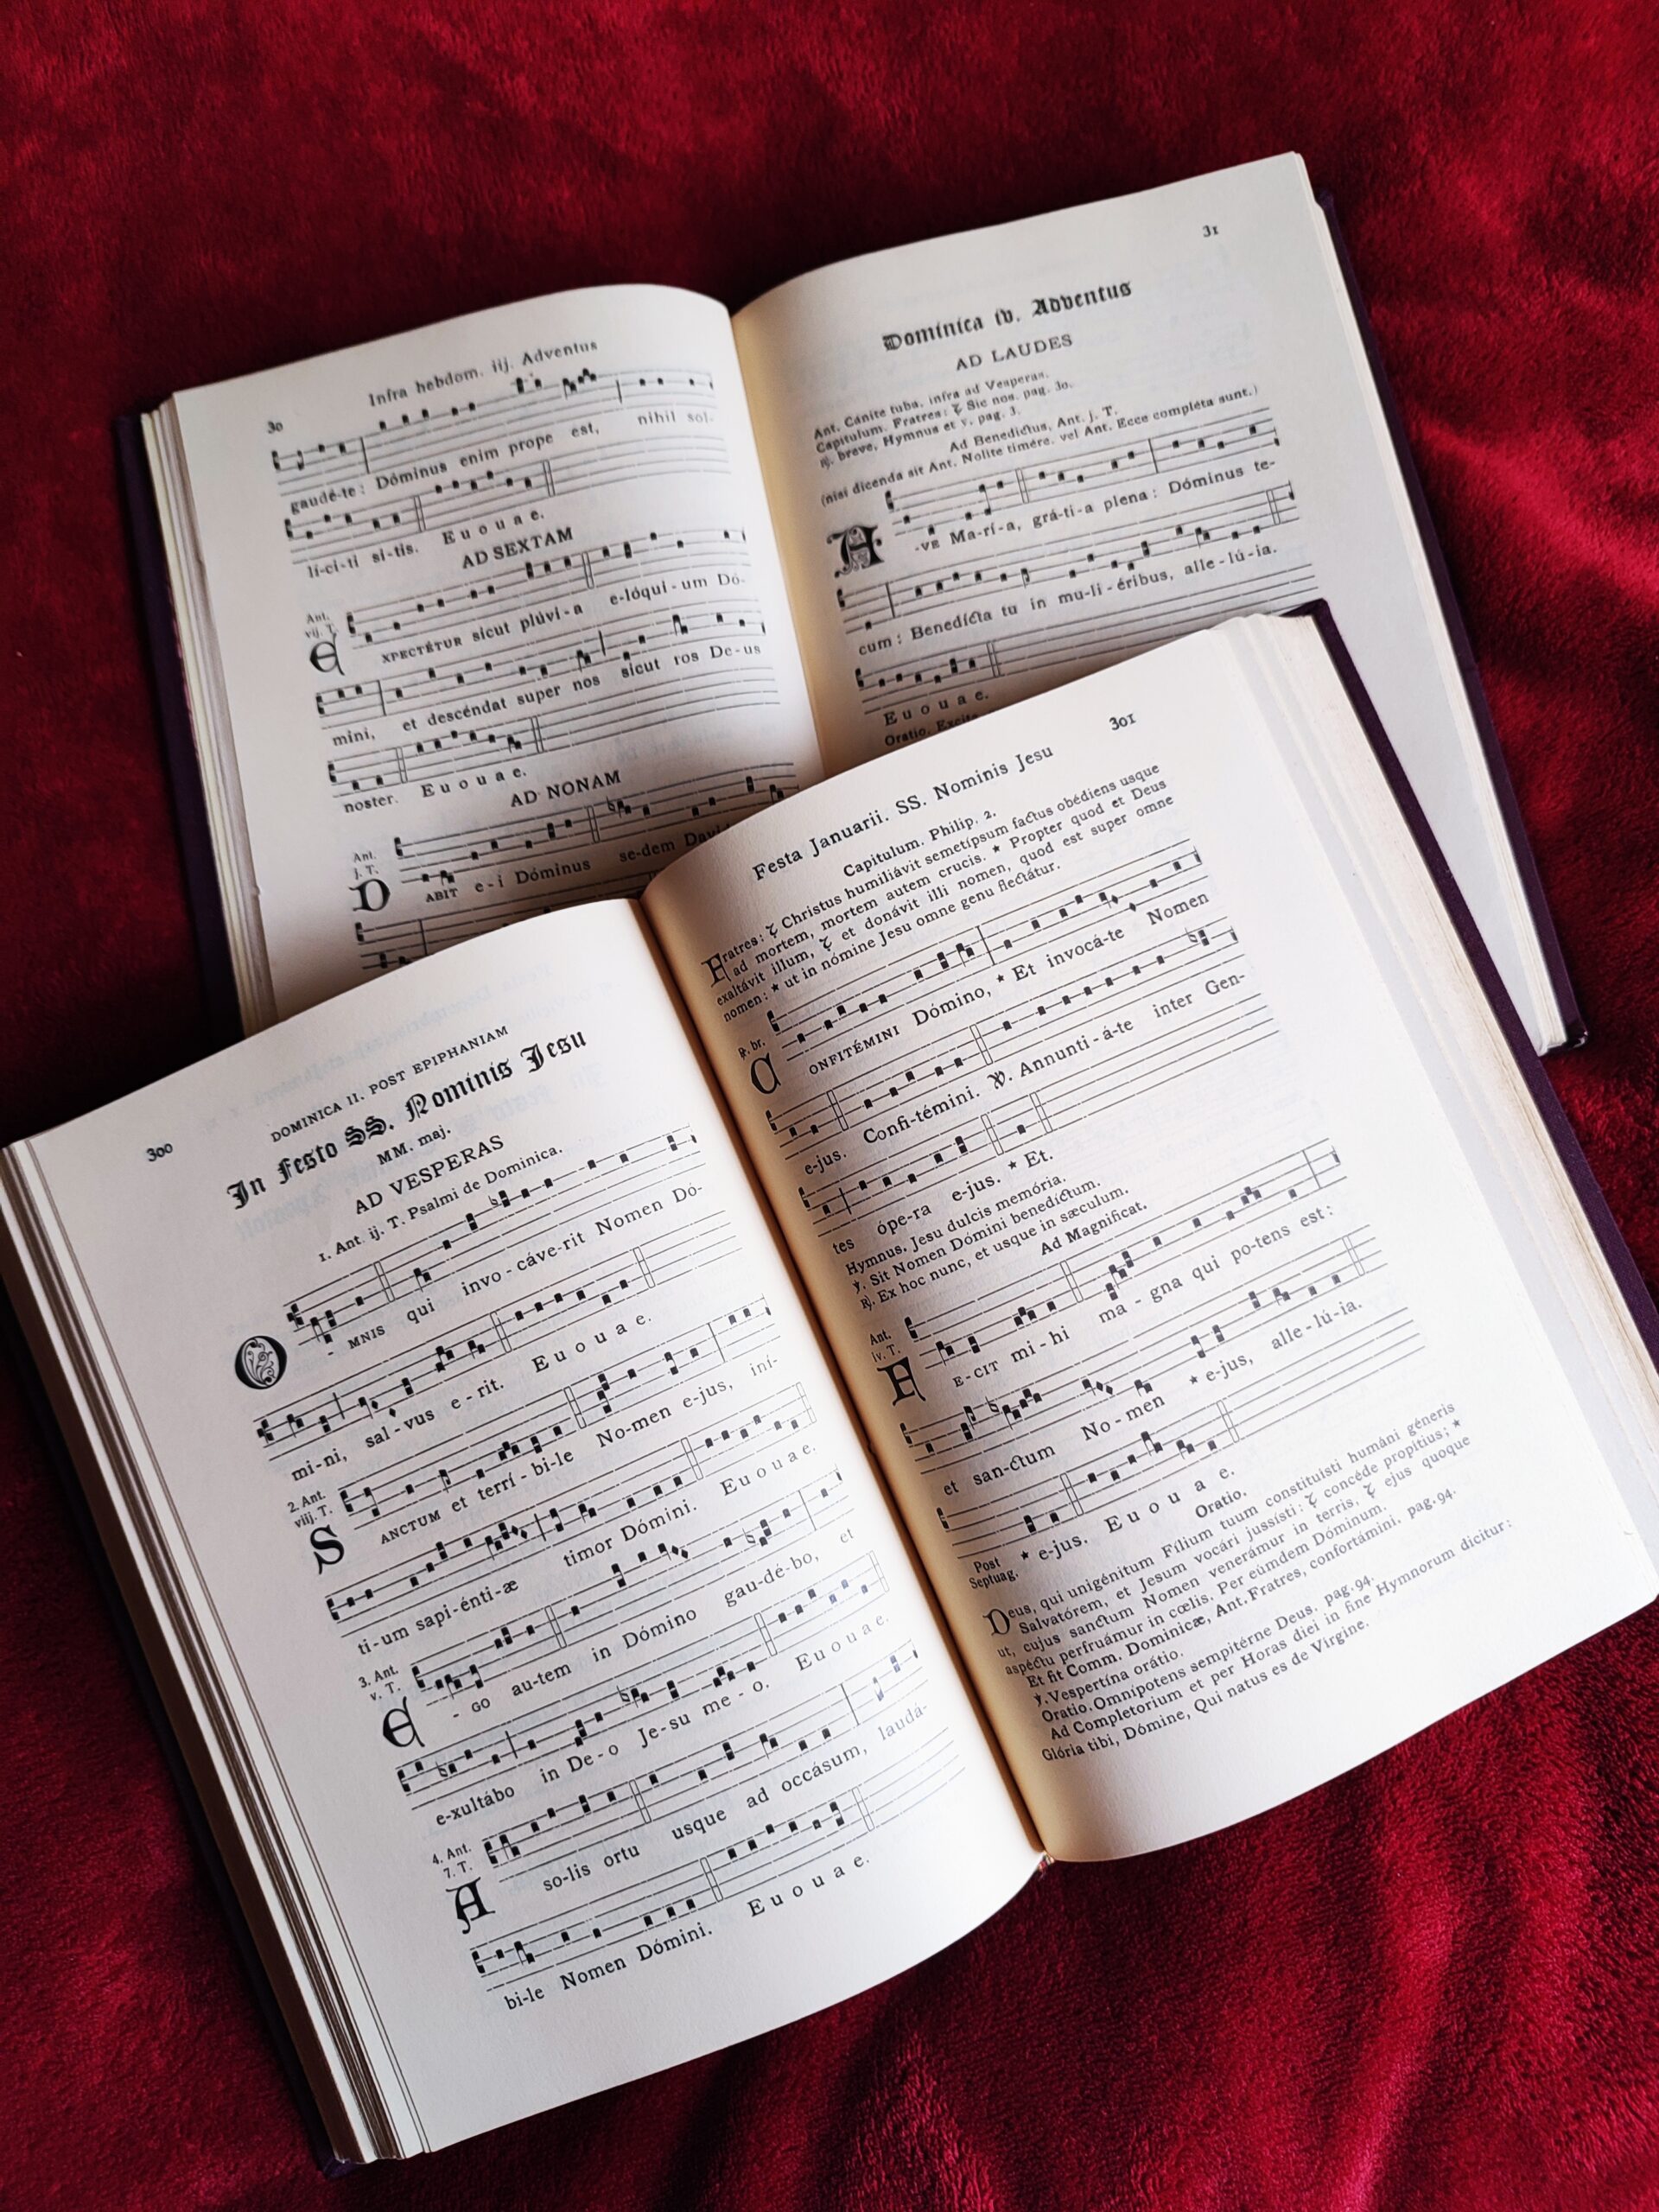 30
Infra hebdom. iij. Adventus
gaudé-te: Dóminus enim prope est, nihil sol-
lí-ci-ti si-tis. E u o u a e.
AD SEXTAM
Ant.
vij. T.
EXPECTÉTUR sicut plúvi-a e-lóqui-um Dó-
mini, et descéndat super nos sicut ros De-us
noster. E u o u a e.
AD NONAM
Ant.
j. T.
DABIT e-i Dóminus se-dem Daví
31
Dominica iv. Adventus
AD LAUDES
Ant. Cánite tuba. infra ad Vesperas.
Capitulum. Fratres: Sic nos. pag. 30.
℟. breve, Hymnus et ℣. pag. 3.
Ad Benedictus, Ant. j. T.
(nisi dicenda sit Ant. Nolite timére. vel Ant. Ecce compléta sunt.)
A-VE Ma-rí-a, grá-ti-a plena: Dóminus te-
cum: Benedícta tu in mu-li-éribus, alle-lú-ia.
E u o u a e.
Oratio. Excita
300
DOMINICA II. POST EPIPHANIAM
In Festo SS. Nominis Jesu
MM. maj.
AD VESPERAS
1. Ant. ij. T. Psalmi de Dominica.
O-MNIS qui invo-cáve-rit Nomen Dó-
mi-ni, sal-vus e-rit. E u o u a e.
2. Ant.
viij. T.
SANCTUM et terrí-bi-le No-men e-jus, iní-
ti-um sapi-énti-æ timor Dómini. E u o u a e.
3. Ant.
v. T.
E-GO au-tem in Dómino gau-dé-bo, et
e-xultábo in De-o Je-su me-o. E u o u a e.
4. Ant.
7. T.
A so-lis ortu usque ad occásum, laudá-
bi-le Nomen Dómini. E u o u a e.
Festa Januarii. SS. Nominis Jesu
301
Capitulum. Philip. 2.
Fratres: Christus humiliávit semetípsum factus obédiens usque
ad mortem, mortem autem crucis. * Propter quod et Deus
exaltávit illum, et donávit illi nomen, quod est super omne
nomen: * ut in nómine Jesu omne genu flectátur.
℟. br.
CONFITÉMINI Dómino, * Et invocá-te Nomen
e-jus. Confi-témini. ℣. Annunti-á-te inter Gen-
tes ópe-ra e-jus. * Et.
Hymnus. Jesu dulcis memória.
℣. Sit Nomen Dómini benedíctum.
℟. Ex hoc nunc, et usque in sæculum.
Ad Magnificat.
Ant.
iv. T.
FE-CIT mi-hi ma-gna qui po-tens est:
et san-ctum No-men * e-jus, alle-lú-ia.
Post
Septuag. * e-jus. E u o u a e.
Oratio.
Deus, qui unigénitum Fílium tuum constituísti humáni géneris
Salvatórem, et Jesum vocári jussísti: concéde propítius; *
ut, cujus sanctum Nomen venerámur in terris, ejus quoque
aspéctu perfruámur in cœlis. Per eúmdem Dóminum.
Et fit Comm. Dominicæ, Ant. Fratres, confortámini. pag. 94.
℣. Vespertína orátio.
Oratio. Omnípotens sempitérne Deus. pag. 94.
Ad Completorium et per Horas diei in fine Hymnorum dicitur:
Glória tibi, Dómine, Qui natus es de Virgine.